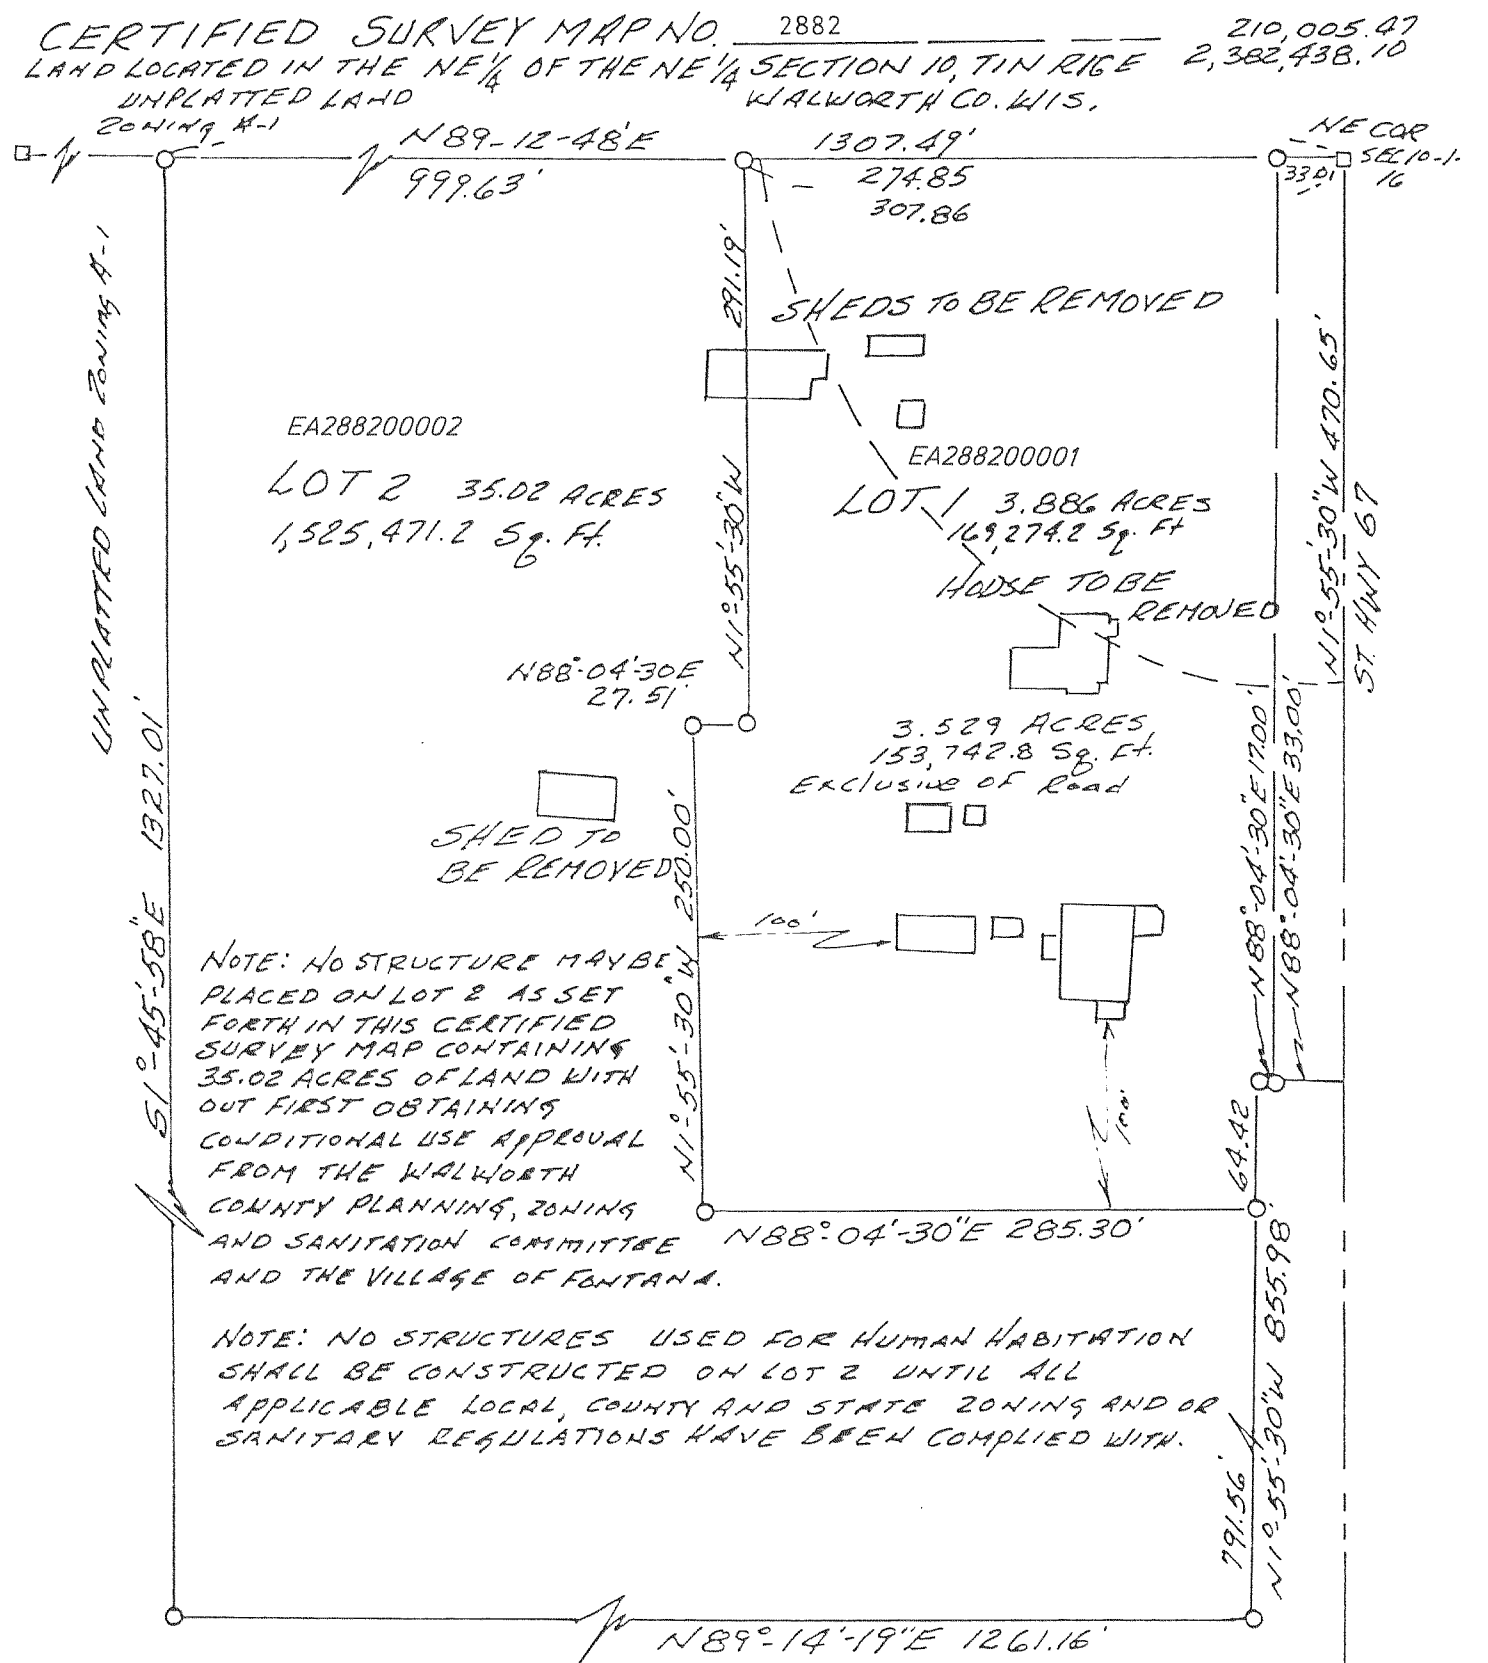 CERTIFIED SURVEY MAP NO. 2882
210,005.47
2,382,438.10
LAND LOCATED IN THE NE 1/4 OF THE NE 1/4 SECTION 10, T1N R16E
WALWORTH CO. WIS.
UNPLATTED LAND
ZONING A-1
N89-12-48'E
999.63'
1307.49'
274.85
307.86
33.01
NE COR
SEC 10-1-
16
UNPLATTED LAND ZONING A-1
291.19'
SHEDS TO BE REMOVED
N1°-55'-30"W 470.65'
ST. HWY 67
EA288200002
LOT 2 35.02 ACRES
1,525,471.2 Sq. Ft.
EA288200001
LOT 1 3.886 ACRES
169,274.2 Sq. Ft
N1°-55'-30"W
HOUSE TO BE
REMOVED
N88°-04'-30E
27.51'
3.529 ACRES
153,742.8 Sq. Ft.
Exclusive of Road
N88°-04'-30"E 17.00'
N88°-04'-30"E 33.00'
SHED TO
BE REMOVED
S1°-45'-58"E 1327.01'
N1°-55'-30"W 250.00'
100'
100'
NOTE: NO STRUCTURE MAY BE
PLACED ON LOT 2 AS SET
FORTH IN THIS CERTIFIED
SURVEY MAP CONTAINING
35.02 ACRES OF LAND WITH
OUT FIRST OBTAINING
CONDITIONAL USE APPROVAL
FROM THE WALWORTH
COUNTY PLANNING, ZONING
AND SANITATION COMMITTEE
AND THE VILLAGE OF FONTANA.
64.42
N88°-04'-30"E 285.30'
NOTE: NO STRUCTURES USED FOR HUMAN HABITATION
SHALL BE CONSTRUCTED ON LOT 2 UNTIL ALL
APPLICABLE LOCAL, COUNTY AND STATE ZONING AND OR
SANITARY REGULATIONS HAVE BEEN COMPLIED WITH.
791.56'
N1°-55'-30"W 855.98'
N89°-14'-19"E 1261.16'